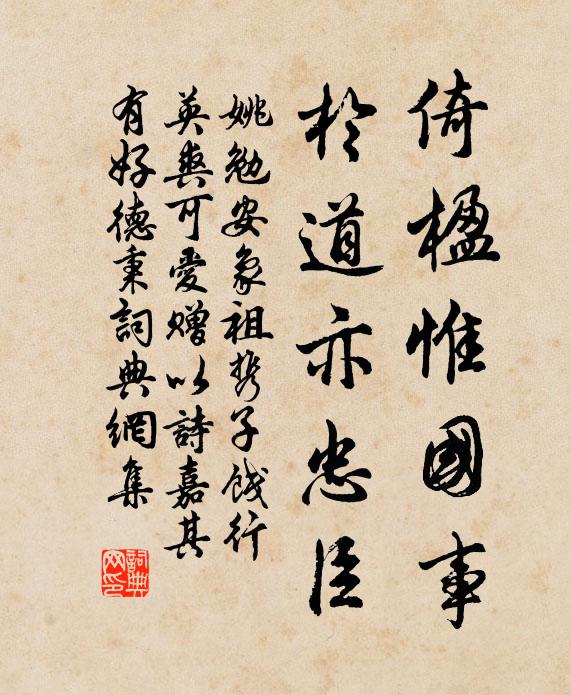 倚楹惟國事
於道亦忠臣
姚勉安象祖携子餞行
英爽可愛贈以詩嘉其
有好德秉詞典網集
詞典網印